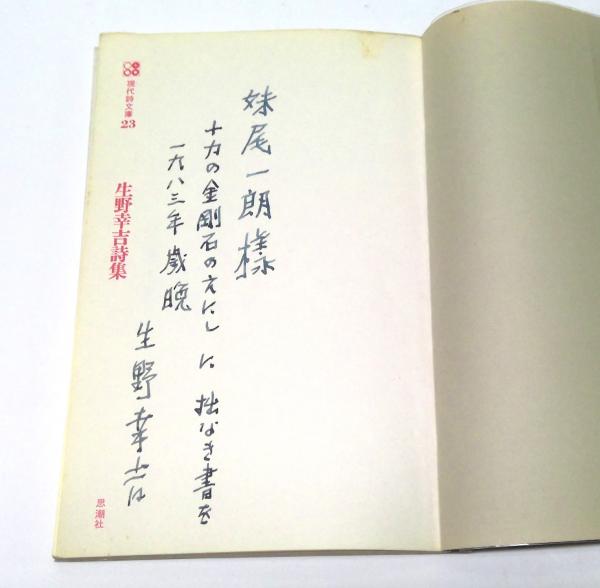 妹尾一朗様
十力の金剛石のえにしに 拙なき書を
一九八三年 歳晩
生野幸吉
現代詩文庫
23
生野幸吉詩集
思潮社